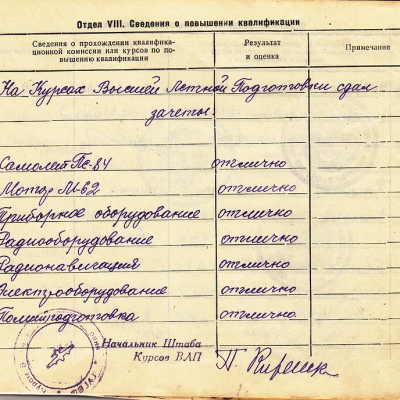 Отдел VIII. Сведения о повышении квалификации
Сведения о прохождении квалифика-
ционной комиссии или курсов по по-
вышению квалификации
Результат
и оценка
Примечание
На Курсах Высшей Летной Подготовки сдал
зачеты:
Самолет Пс-84 отлично
Мотор М-62 отлично
Приборное оборудование отлично
Радиооборудование отлично
Радионавигация отлично
Электрооборудование отлично
Политподготовка отлично
Начальник Штаба
Курсов ВЛП